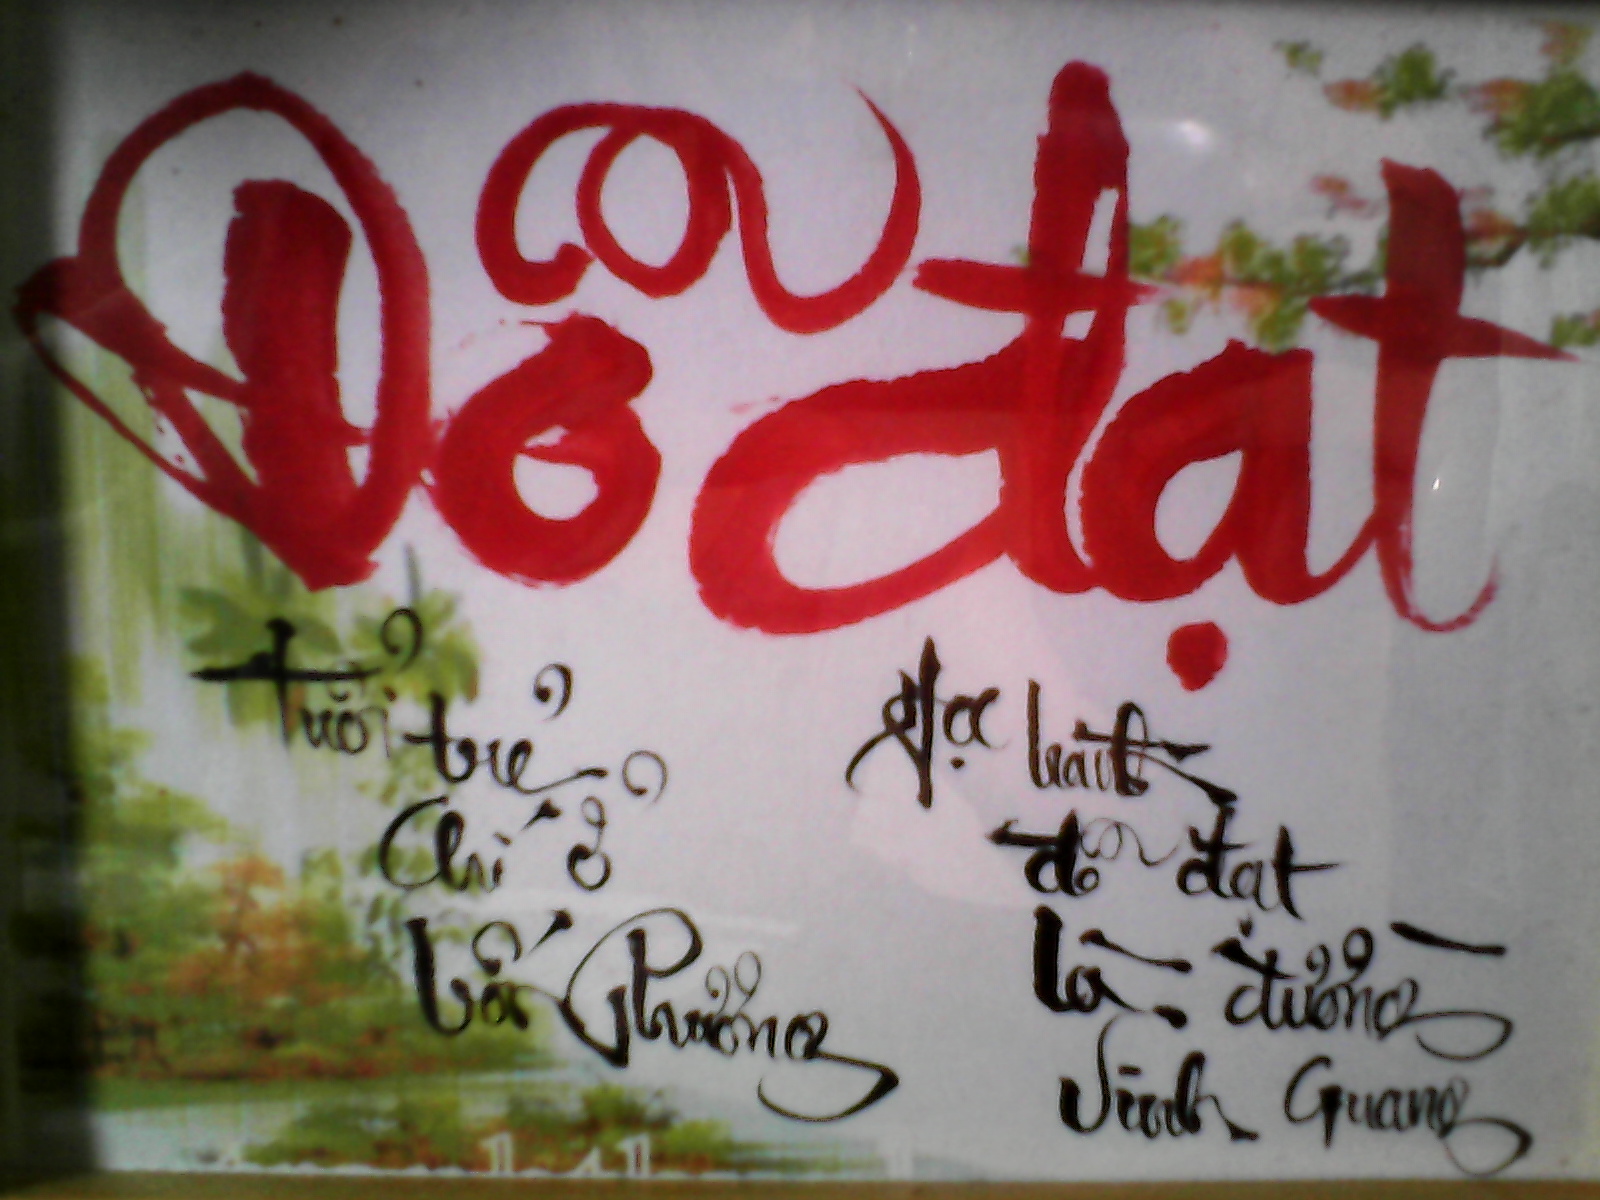 Đỗ đạt
Tuổi trẻ
Chí ở
bốn Phương
Học hành
đỗ đạt
là đường
Vinh Quang